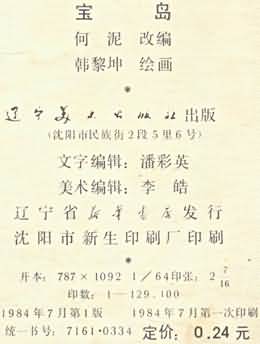 宝 岛
何泥 改编
韩黎坤 绘画
辽宁美术出版社出版
(沈阳市民族街2段5里6号)
文字编辑：潘彩英
美术编辑：李皓
辽宁省新华书店发行
沈阳市新生印刷厂印刷
开本：787×1092 1/64 印张：2 7/16
印数：1—129,100
1984年7月第1版 1984年7月第一次印刷
统一书号：7161·0334 定价：0.24元